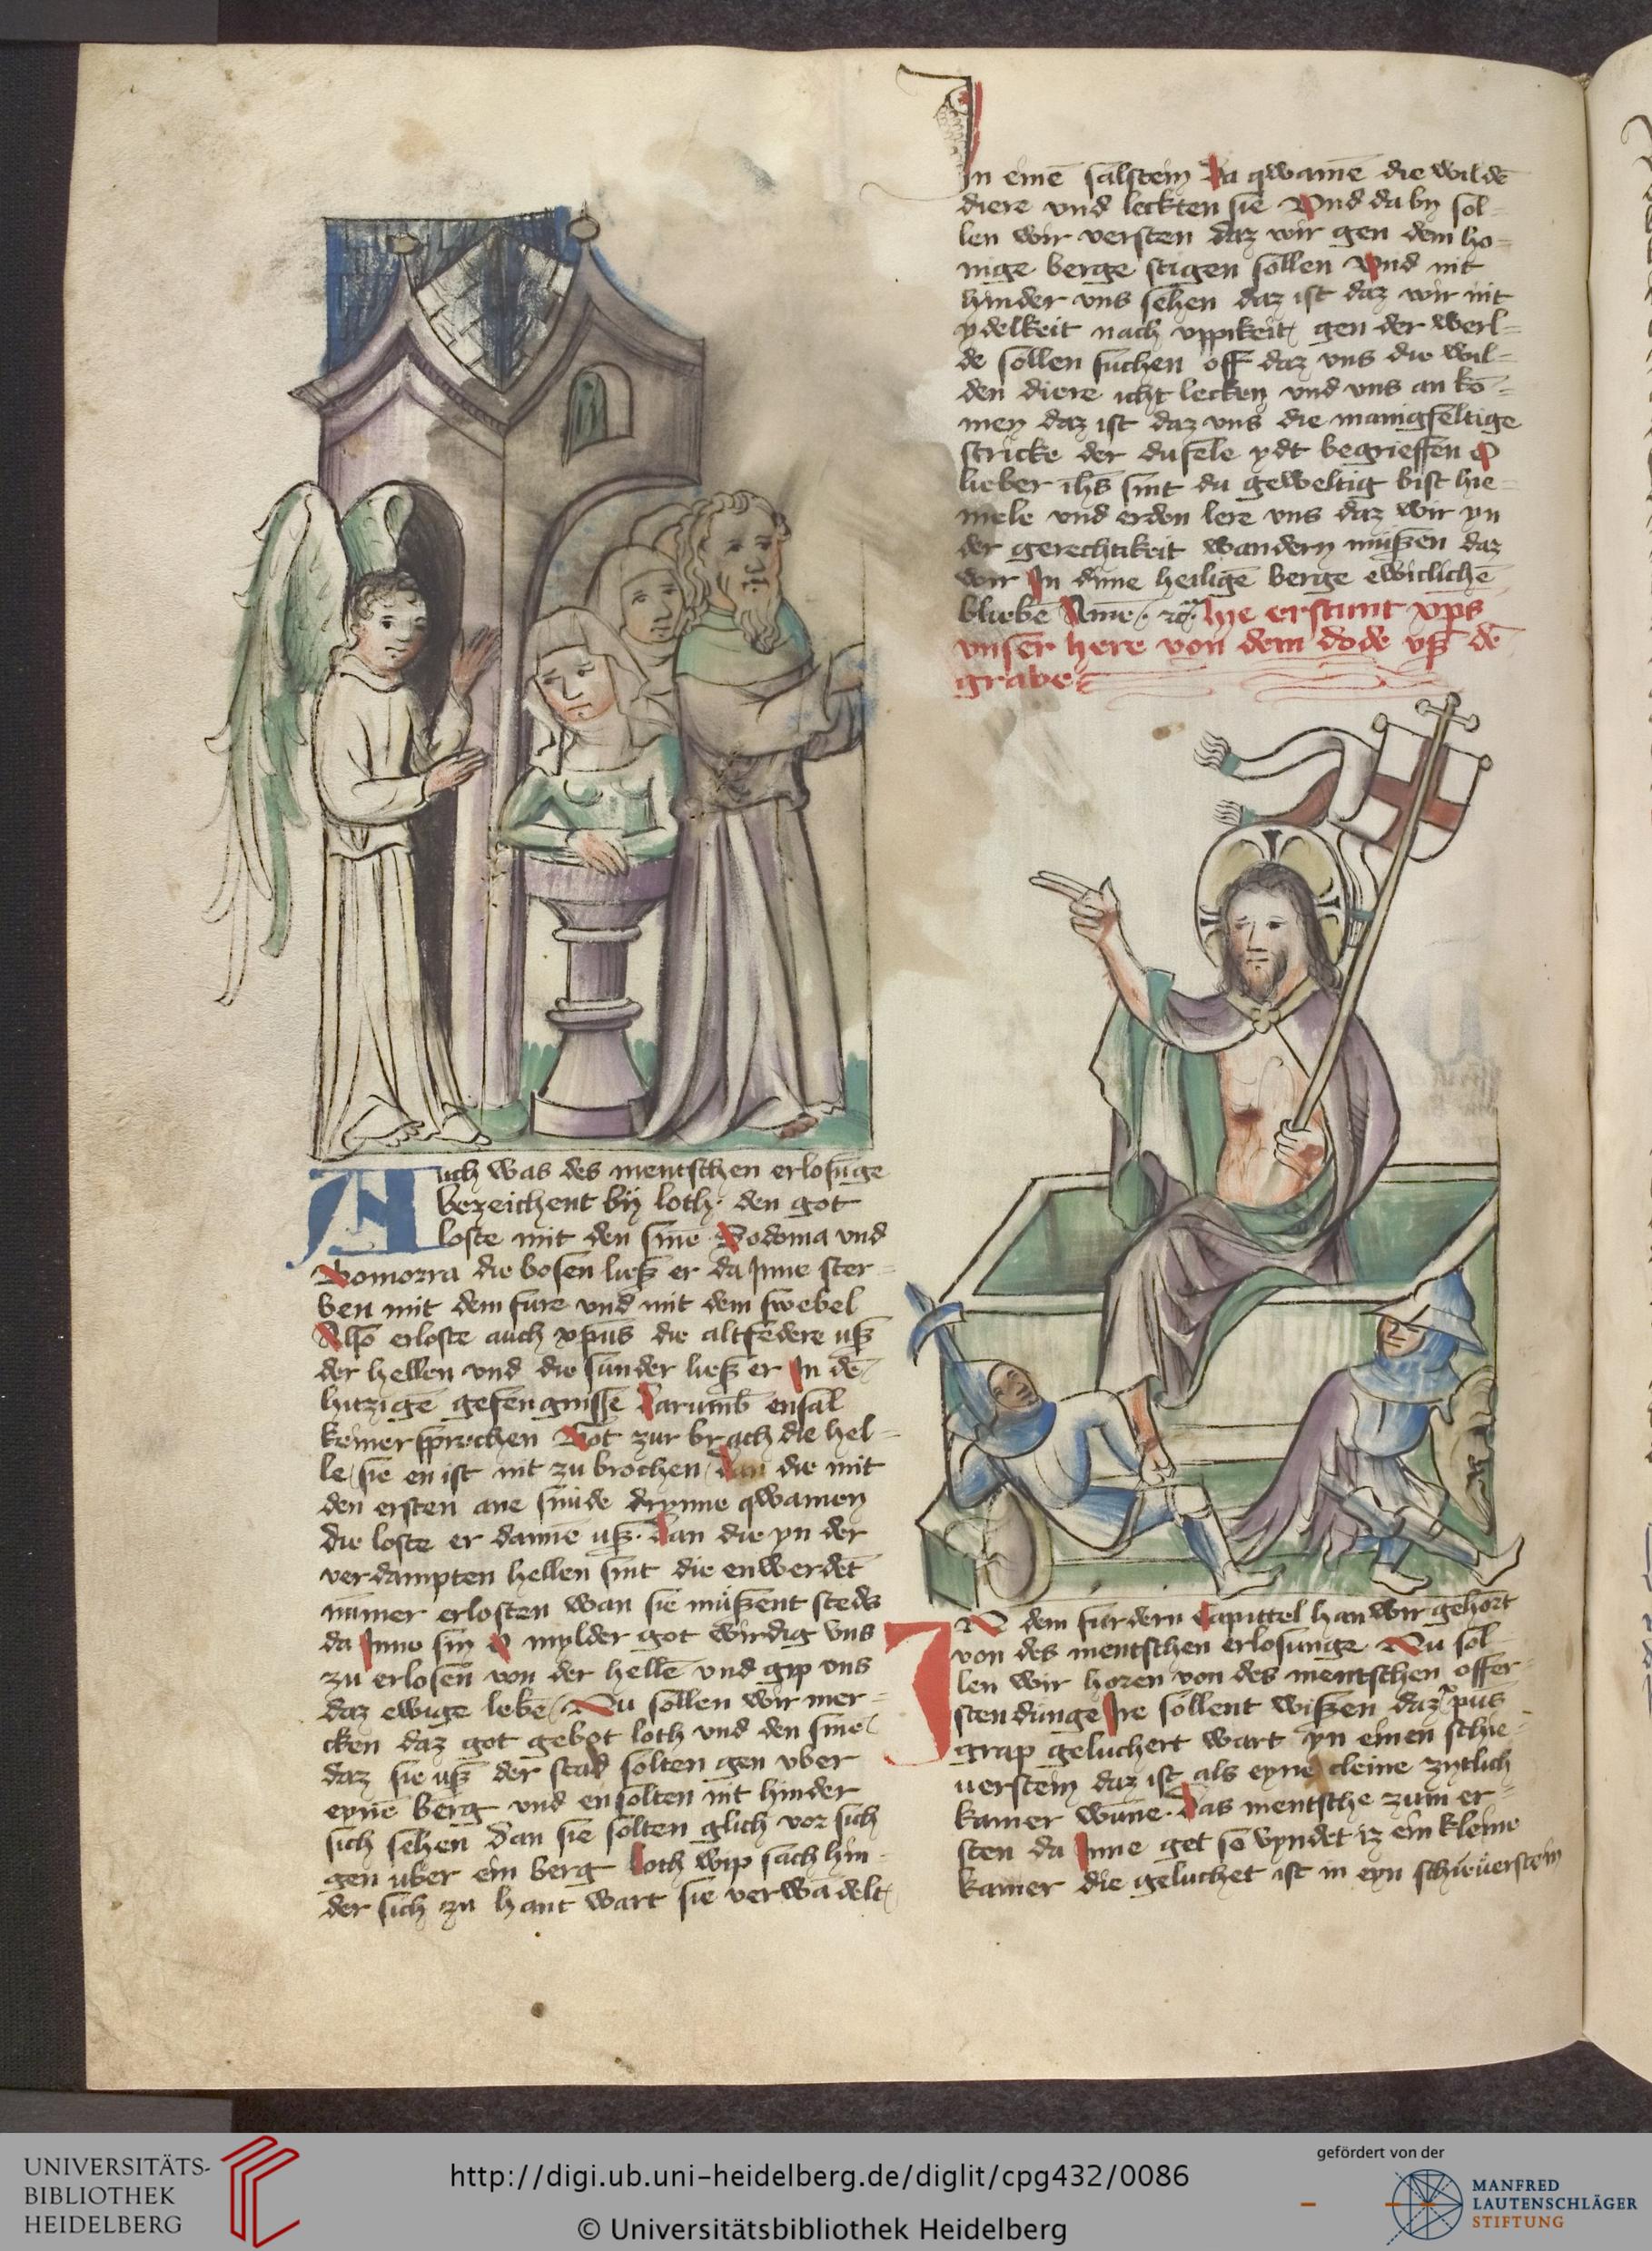 Auch was des mentschen erlosūge
bezeichent bÿ loth· den got
loste mit den sinē Sodoma vnd
Gomorra die bosen ließ er da Inne ster-
ben mit dem fure vnd mit dem swebel
Also erloste auch xp̄us die altfedere uß
der hellen vnd die sunder ließ er In dē
hitzigē gefengnisse Darumb ensal
keiner sprechen Got zur brach die hel-
le sie en ist nit zu brochen dan die mit
den ersten ane sūnde drynne qwamen
die loste er danne uß· Dan die yn der
verdampten hellen sint die enwerdēt
nūmer erlosten wan sie mußent steds
da Inne sin O mylder got wirdig vns
zu erlosen von der hellē vnd gip vns
daz ewige lebē Nu sollen wir mer-
cken daz got gebot loth vnd den sinē
daz sie uß der stad solten gen vber
eynē berg vnd ensolten nit hinder
sich sehen Dan sie solten glich vor sich
gen uber ein berg loth wip sach hin-
der sich zu hant wart sie verwādelt
In einē salstein Da qwamē die wildē
diere vnd leckten sie Vnd da by sol-
len wir versten daz wir gen dem ho-
nige berge stigen sollen Vnd nit
hinder vns sehen daz ist daz wir nit
ydelkeit nach vppikeit gen der werl-
de sollen suchen off daz vns die wil-
den diere icht lecken vnd vns an kō-
men daz ist daz vns die manigfeltige
stricke der dufele ydt begrieffen O
lieber ih̄s sint du geweltig bist hie-
mele vnd erden lere vns daz wir yn
der gerechtikeit wandern mußen daz
wir In dine heiligē berge ewiclichē
bliebē Amē· Hie erstunt xp̄s
vnser here von dem dode vß dē
grabe
IN dem furdern Capittel han wir gehort
von des mentschen erlosunge Nu sol
len wir horen von des mentschen offer-
stendunge Ire sollent wißen daz xp̄us
grap geluchert wart yn einen schie-
uerstein daz ist als eyne cleine zytlich
kamer wūne· Das mentsche zum er-
sten da Inne get so vyndet iz ein kleine
kamer die geluchet ist in eyn schieuerstein
UNIVERSITÄTS-
BIBLIOTHEK
HEIDELBERG
http://digi.ub.uni-heidelberg.de/diglit/cpg432/0086
© Universitätsbibliothek Heidelberg
gefördert von der
MANFRED
LAUTENSCHLÄGER
STIFTUNG